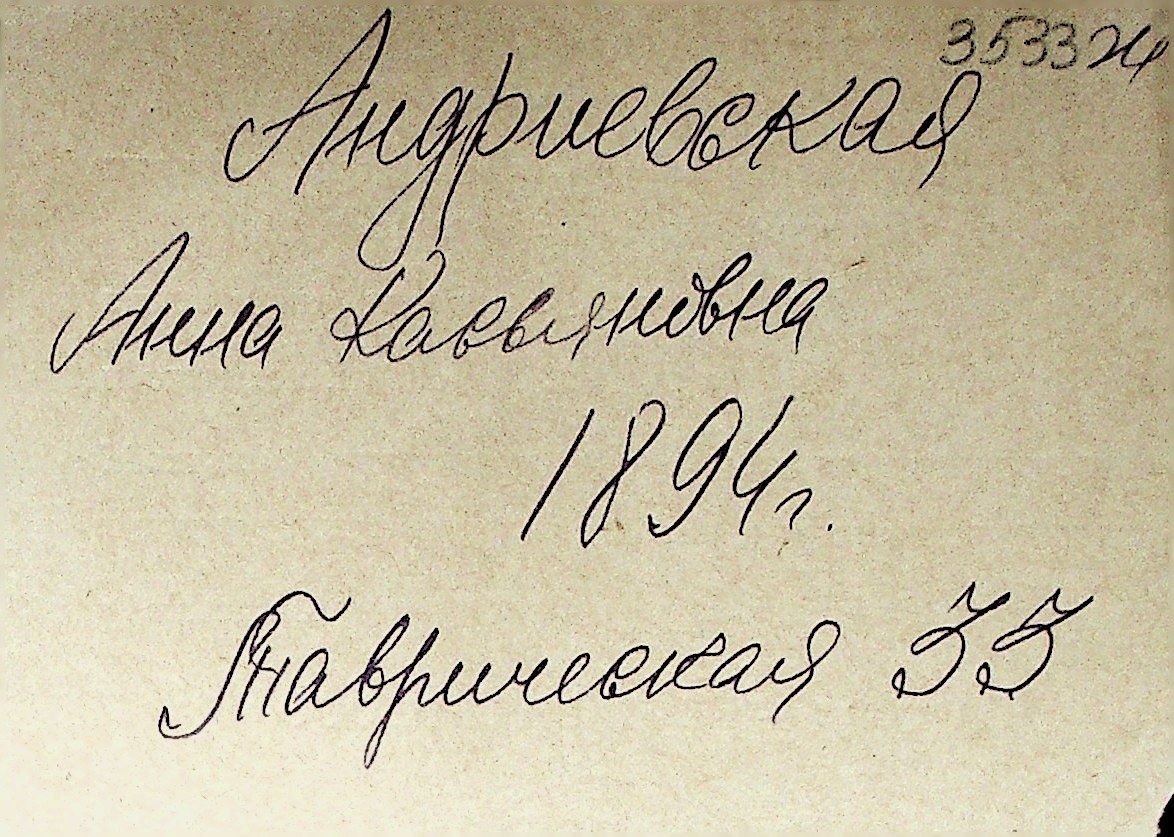 3533ж
Андриевская
Анна Касьяновна
1894г.
Таврическая 33